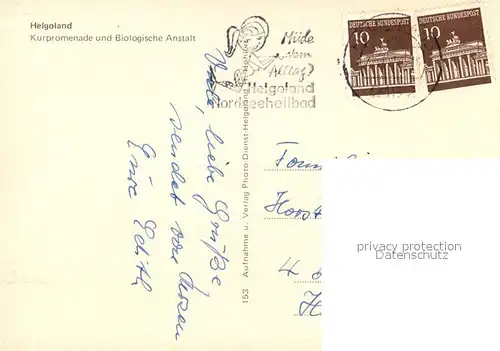 Helgoland
Kurpromenade und Biologische Anstalt
Müde
vom
Alltag?
Helgoland
Nordseeheilbad
DEUTSCHE BUNDESPOST
10
DEUTSCHE BUNDESPOST
10
Viele, liebe Grüße
sendet von hier
Eure Edith
153 Aufnahme u. Verlag Photo-Dienst-Helgoland
Horst
4
H
privacy protection
Datenschutz